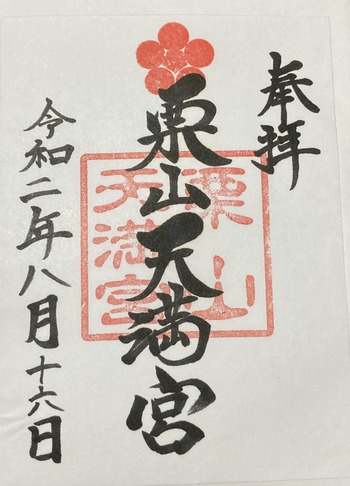 奉拝
栗山天満宮
栗山
天満宮
令和二年八月十六日